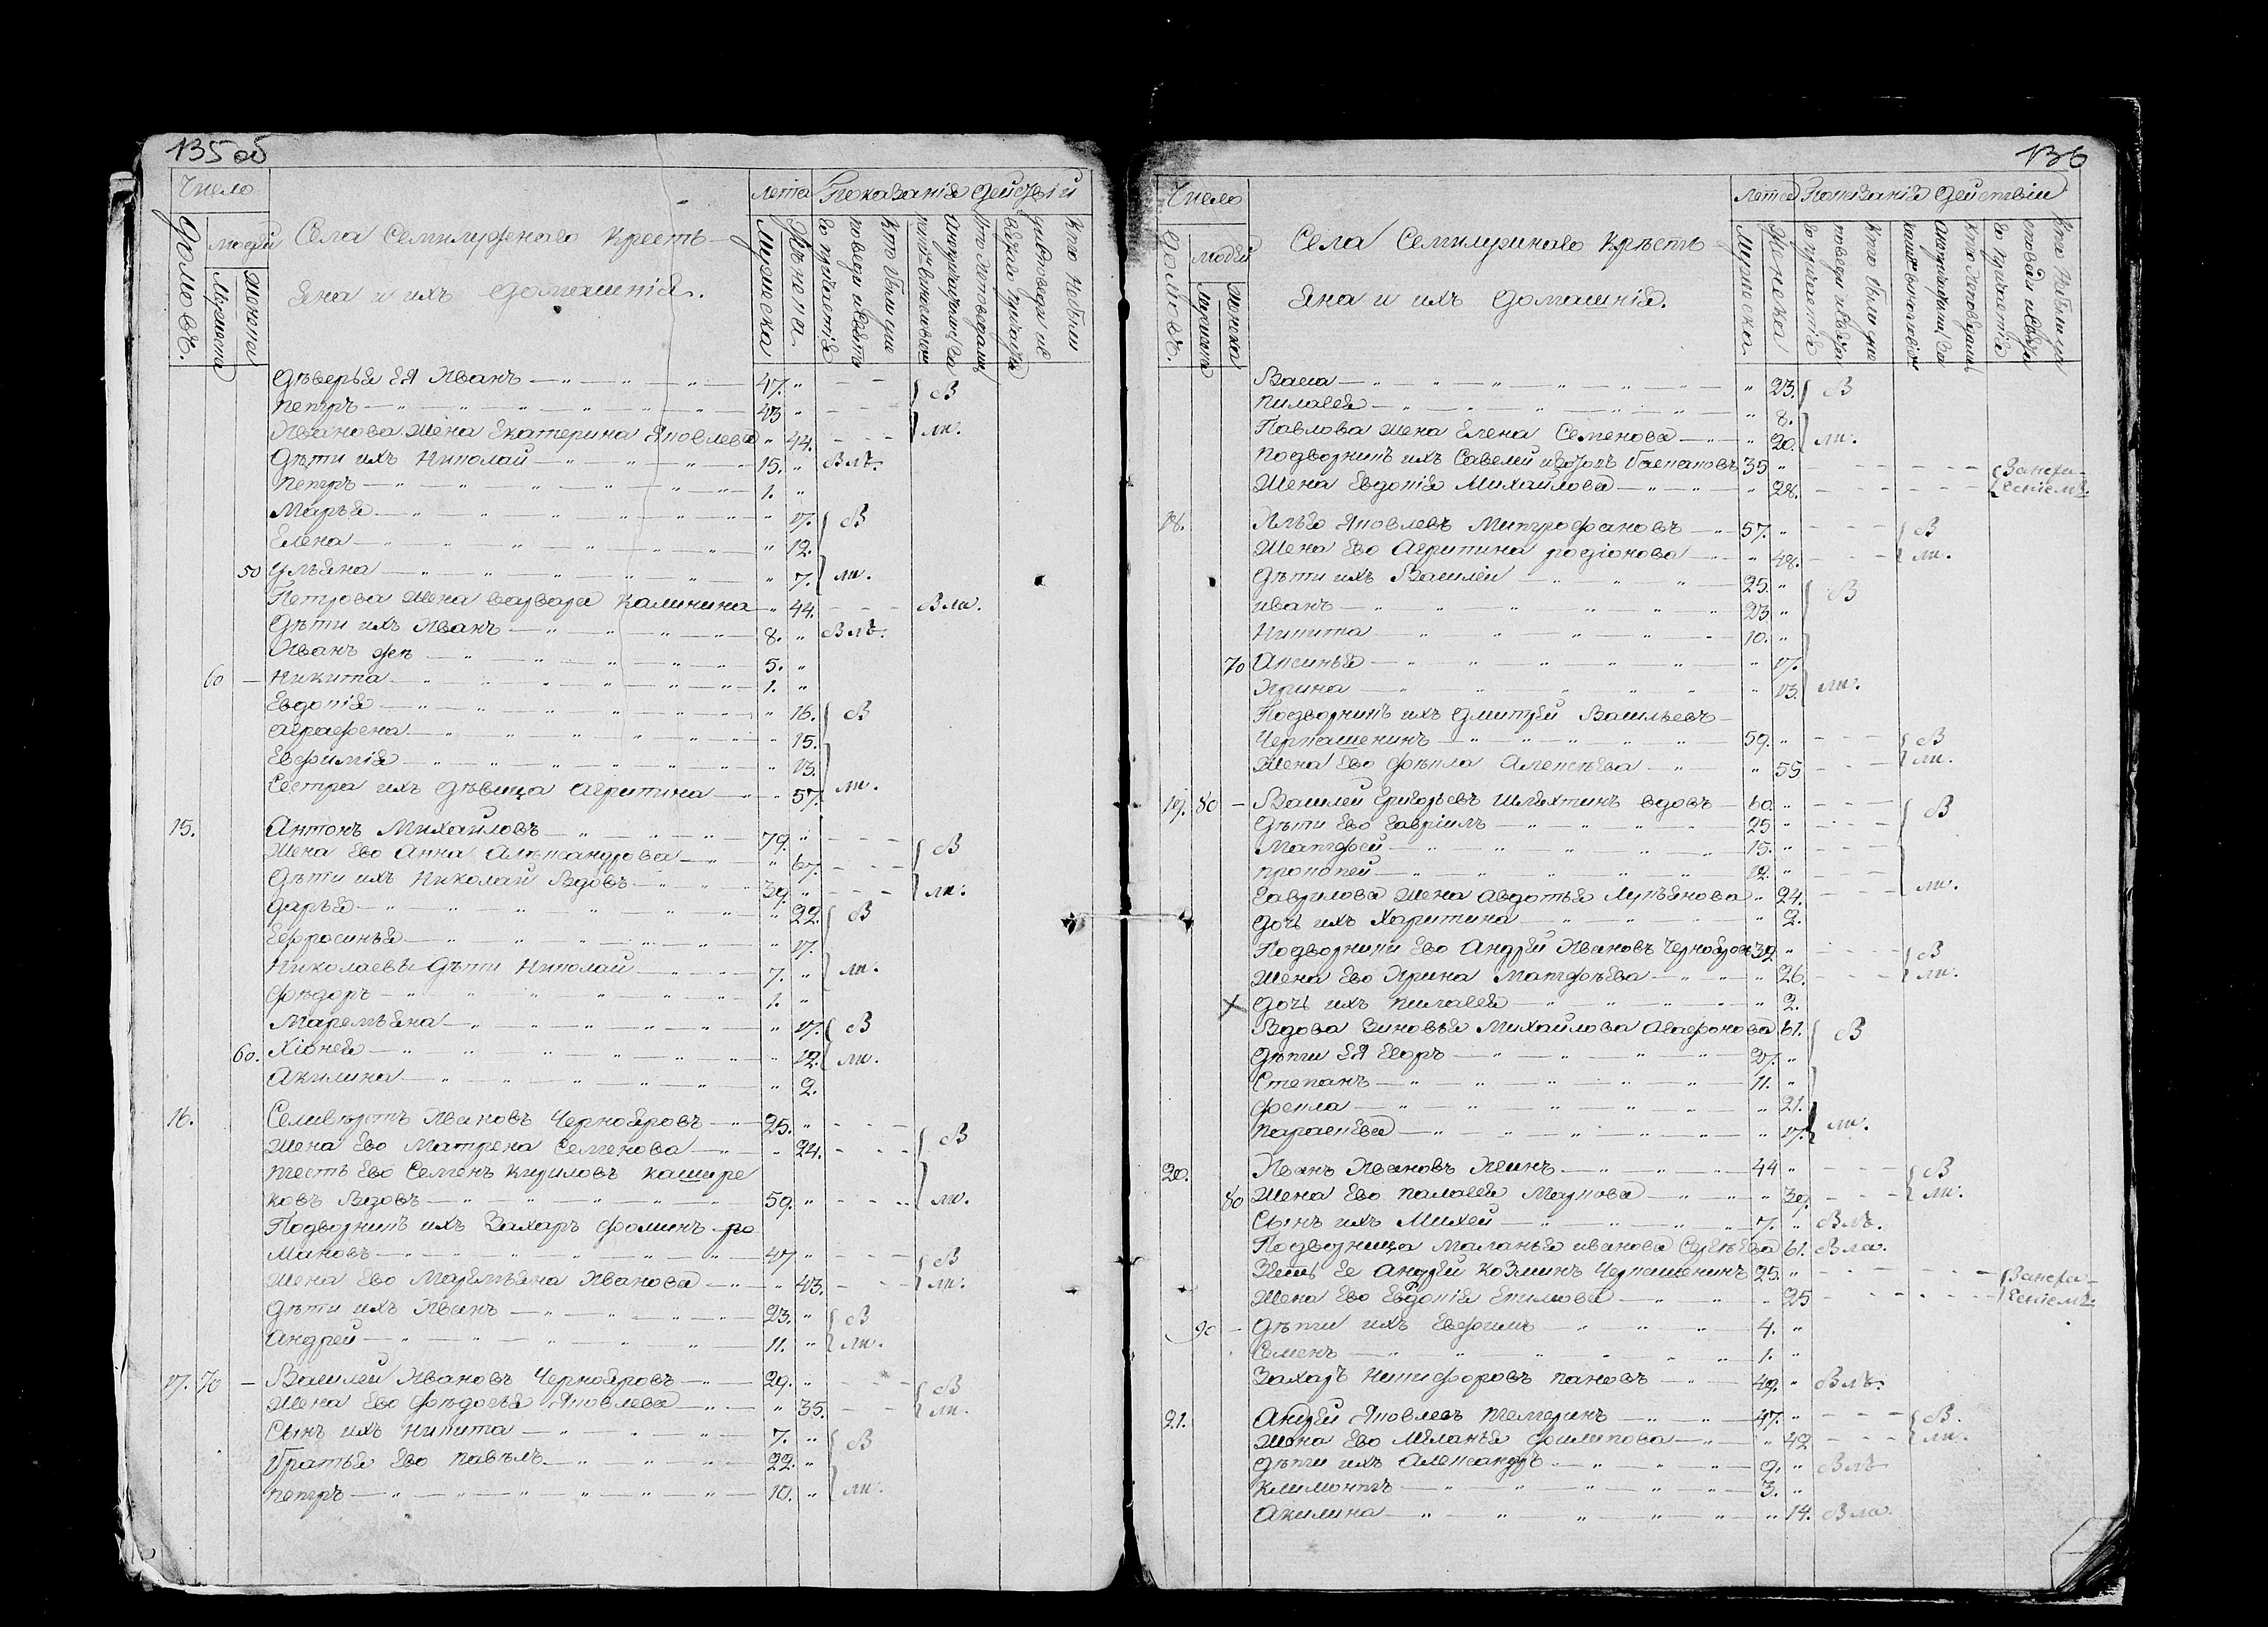 135 об
Число
Домовъ.
людей
Мужеска
Женска
Села Семилужнаго кресть-
яна и ихъ домашнія.
лета
Мужеска
Женска.
Показанія действій
Деверья ея Иванъ 47. "
Петръ 43 "
Иванова жена Екатерина Яковлева " 44.
Дѣти ихъ Николай 15. " Влъ.
Петръ 1. "
Марья " 17. В
Елена " 12.
50 Ульяна " 7. ли.
Петрова жена варвара Калинина " 44. Вла.
Дѣти ихъ Иванъ 8. " Влъ.
Иванъ же 5. "
60 — Никита 1. "
Евдокія " 16. В
Аграфена " 15.
Евфимія " 13.
Сестра ихъ дѣвица Агрипина " 57. ли.
15. Антонъ Михайловъ 79. "
Жена Ево Анна Алѣксандрова " 67. В
Дѣти ихъ Николай Вдовъ 39. " ли.
Дарья " 22. В
Ефросинья " 17.
Николаевы дѣти Николай 7. " ли.
Фѣдоръ 1. "
Маремьяна " 17. В
60. Хіонея " 12. ли.
Акилина " 2.
16. Селивѣрстъ Ивановъ Чернояровъ 25. "
Жена Ево Матрена Семенова " 24. В
тесть Ево Семенъ Кириловъ кашире
ковъ Вдовъ 59. " ли.
Подворникъ ихъ Захаръ Фоминъ ро
мановъ 47 " В
Жена Ево Маремьяна Иванова " 43. ли.
Дѣти ихъ Иванъ 23. " В
Андрей 11. " ли.
17. 70 — Василей Ивановъ Чернояровъ 29. " В
Жена Ево Фѣдосья Яковлева " 35. ли.
Сынъ ихъ Никита 7. "
Братья Ево Павълъ 22. " В
Петръ 10. " ли.
136
Число
Домовъ.
людей
Мужеска
Женска
Села Семилужнаго крѣсть
яна и ихъ домашнія.
Летa
Мужеска
Женска
Показанія действіи
Васа " 23. В
Пилагея " 8.
Павлова жена Елена Семенова " 20. ли.
подворникъ ихъ Савелей 35 "
Жена Евдокія Михайлова " 28.
18. Илья Яковлевъ Митрофановъ 57. " В
Жена Ево Агрипина родіонова " 48. ли.
Дѣти ихъ Василеи 25. "
иванъ 23 " В
Никита 10. "
70 Аксинья " 17.
Ирина " 13. ли.
Подворникъ ихъ Дмитрей Васильевъ
Черкашенинъ 59. " В
Жена Ево Фѣкла Алексѣева " 55 ли.
19. 80 — Василей Григорьевъ Шляхтинъ вдовъ 60. "
Дѣти Ево Гавріилъ 25 " В
Матфей 15. "
прокопей 12. "
Гаврилова жена Авдотья Лукьянова " 24. ли.
дочь ихъ Харитина " 2.
Подворники Ево Андрей Ивановъ Чернояровъ 39. " В
Жена Ево Ирина Матфѣева " 26. ли.
дочь ихъ Пилагея " 2.
Вдова Зиновья Михайлова Агафонова 61.
Дѣти ея Егоръ 27. " В
Степанъ 11. "
Фекла " 21.
Параскева " 17. ли.
20. Иванъ Ивановъ 44 " В
80 Жена Ево Палагея Маркова " 39. ли.
Сынъ их Михей 7. " Влъ.
Подворница Маланья иванова Сергѣева 61. Вла.
Зять ее Андрей Козминъ Черкашенинъ 25. "
Жена Ево Евдокія Екимова " 25
90 — Дѣти ихъ Евфимъ 4. "
Семенъ 1. "
Захаръ Никифоровъ пановъ 49. " Влъ.
21. Андрей Яковлевъ 47. " В.
Жена Ево Меланья Филипова " 42 ли.
Дѣти ихъ Александръ 9. " Влъ
Климонтъ 3. "
Акилина " 14. Вла.